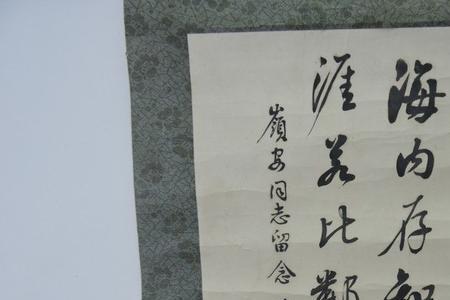 海内存知
涯若比鄰
嶺安同志留念